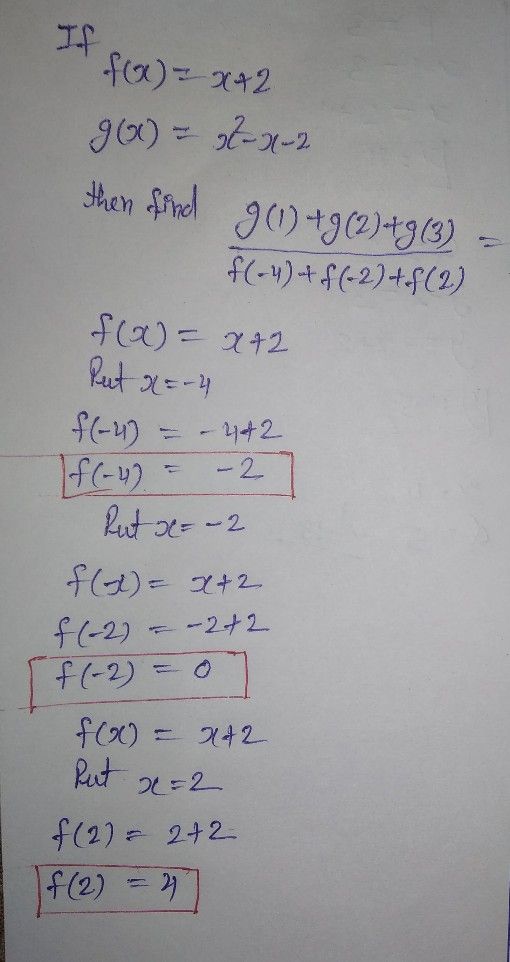 If
f(x) = x+2
g(x) = x²-x-2
then find g(1)+g(2)+g(3) / f(-4)+f(-2)+f(2) =
f(x) = x+2
Put x=-4
f(-4) = -4+2
f(-4) = -2
Put x= -2
f(x) = x+2
f(-2) = -2+2
f(-2) = 0
f(x) = x+2
Put x=2
f(2) = 2+2
f(2) = 4